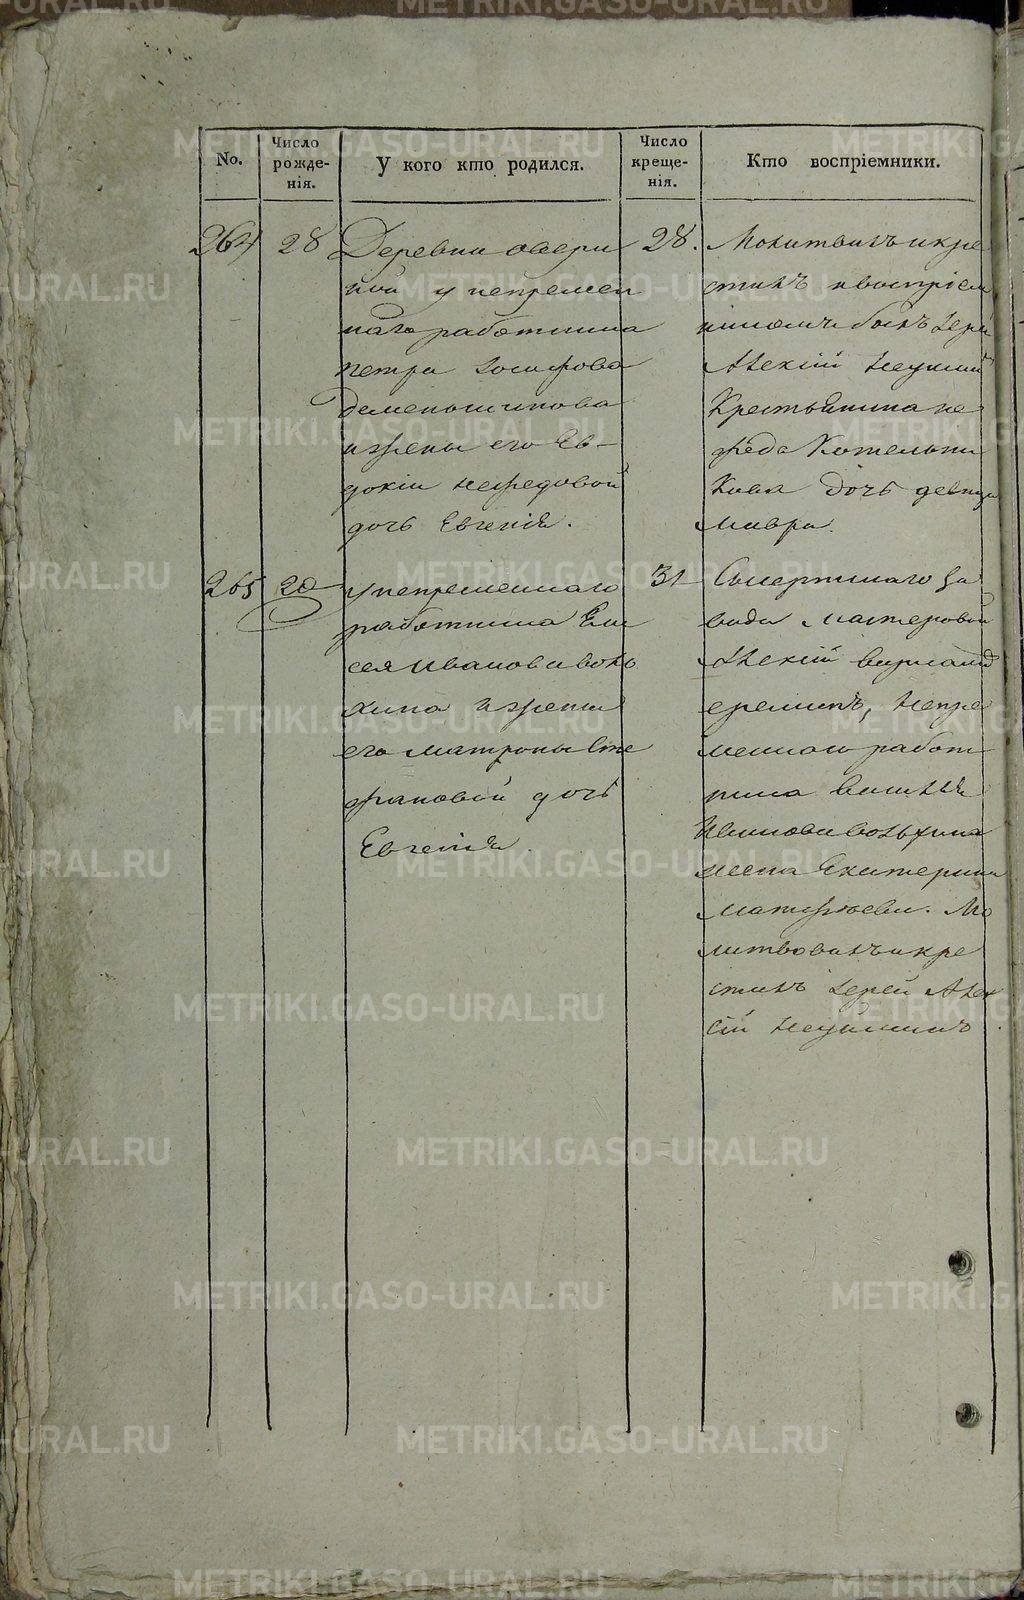 No.
Число рожде-нія.
У кого кто родился.
Число креще-нія.
Кто воспріемники.
264
28
Деревни озери
ной у непремен
наго работника
петра Іосифова
деменьшикова
и жены его Ев-
докіи нефедовой
дочь Евгенія.
28.
Молитвилъ и кре
стилъ и воспріем
никомъ былъ Іерей
Алексій Неуминъ
Крестьянина не
феда Котельни
кова дочь девица
Мавра.
265
20
у непременнаго
работника Ели
сея Иванова воло
хина и жены
его матроны Сте
фановой дочь
Евгенія.
31
Сысертскаго За
вода мастеровой
Алексій
ереминъ, Непре
меннаго работ
ника
Иванова
жена Екатерина
Матфѣева. Мо
литвовалъ и кре
стилъ Іерей Алек
сій Неуминъ.
METRIKI.GASO-URAL.RU